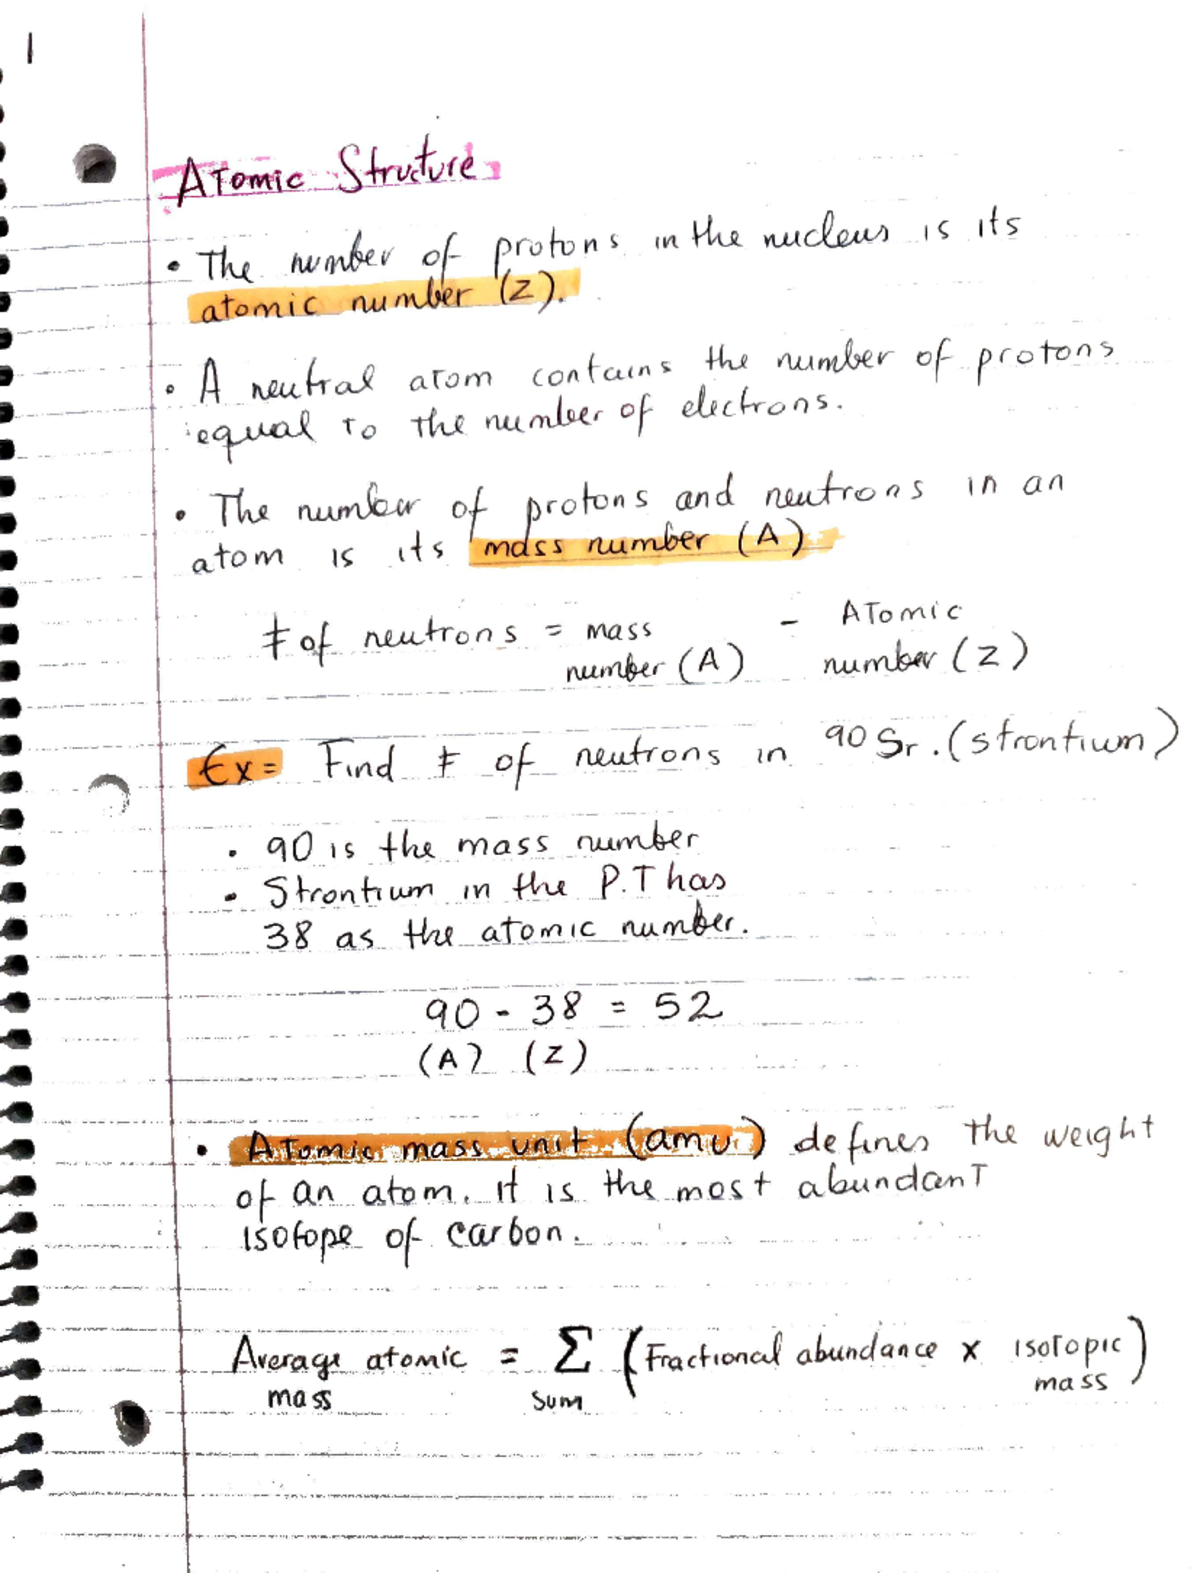 1
Atomic Structure
• The number of protons in the nucleus is its
atomic number (Z).
• A neutral atom contains the number of protons
equal to the number of electrons.
• The number of protons and neutrons in an
atom is its mass number (A)
# of neutrons = mass number (A) - Atomic number (Z)
Ex= Find # of neutrons in 90 Sr. (strontium)
• 90 is the mass number
• Strontium in the P.T has
38 as the atomic number.
90 - 38 = 52
(A) (Z)
• Atomic mass unit (amu) defines the weight
of an atom. it is the most abundant
isotope of carbon.
Average atomic mass = Σ sum (Fractional abundance x isotopic mass)